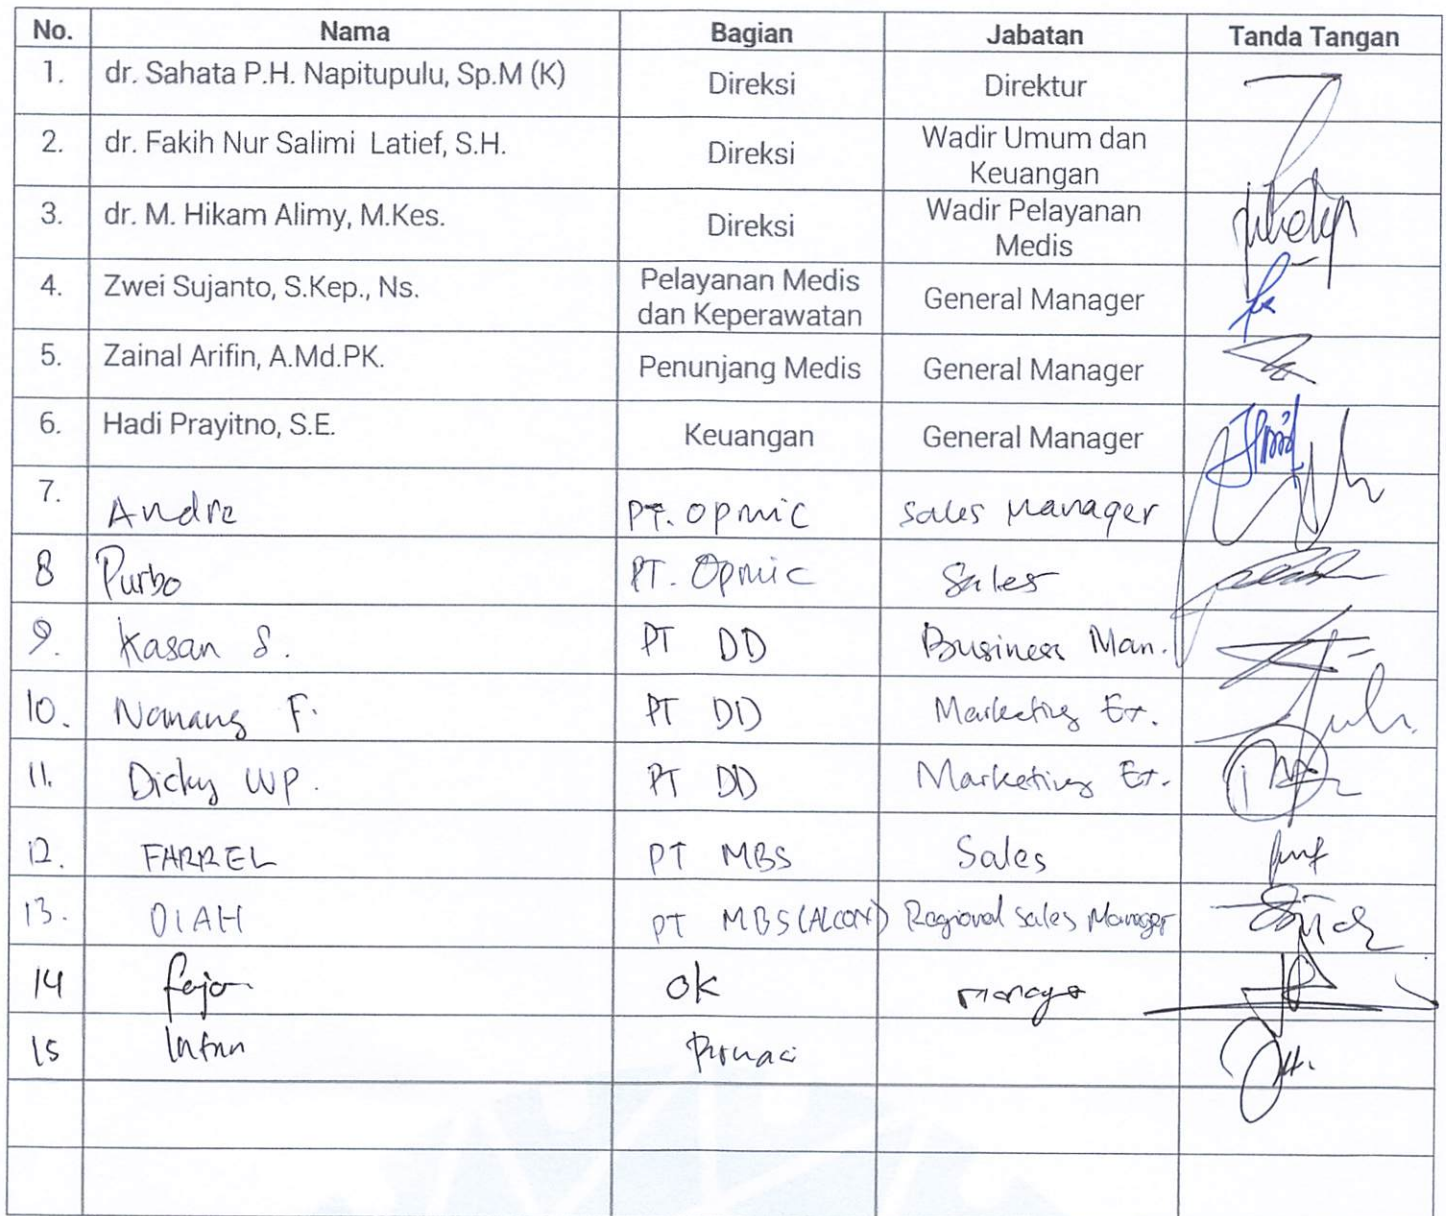 No. Nama Bagian Jabatan Tanda Tangan
1. dr. Sahata P.H. Napitupulu, Sp.M (K) Direksi Direktur
2. dr. Fakih Nur Salimi Latief, S.H. Direksi Wadir Umum dan
Keuangan
3. dr. M. Hikam Alimy, M.Kes. Direksi Wadir Pelayanan
Medis
4. Zwei Sujanto, S.Kep., Ns. Pelayanan Medis
dan Keperawatan General Manager
5. Zainal Arifin, A.Md.PK. Penunjang Medis General Manager
6. Hadi Prayitno, S.E. Keuangan General Manager
7. Andre PT. Opmic Sales Manager
8 Purbo PT. Opmic Sales
9. Kasan S. PT DD Business Man.
10. F. PT DD Marketing Ex.
11. Dicky WP. PT DD Marketing Ex.
12. FARREL PT MBS Sales
13. DIAH PT MBS (ALCON) Regional Sales Manager
14 OK
15